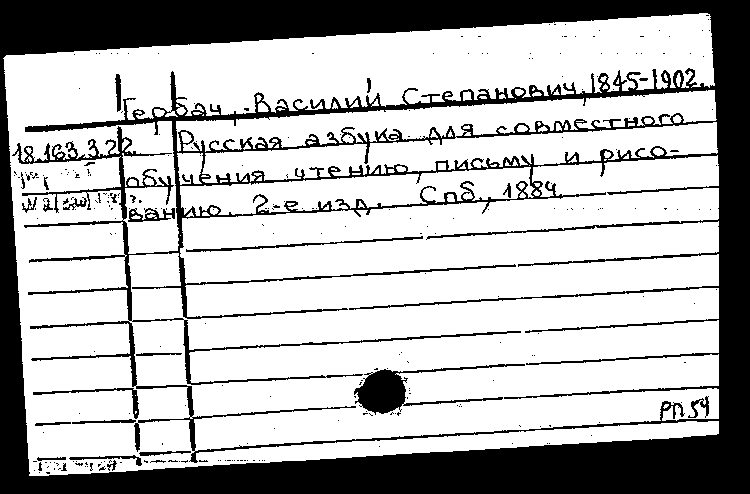 Гербач, Василий Степанович, 1845-1902.
18.163.3.22. Русская азбука для совместного
обучения чтению, письму и рисо-
ванию. 2-е изд. Спб., 1884.
РП 54